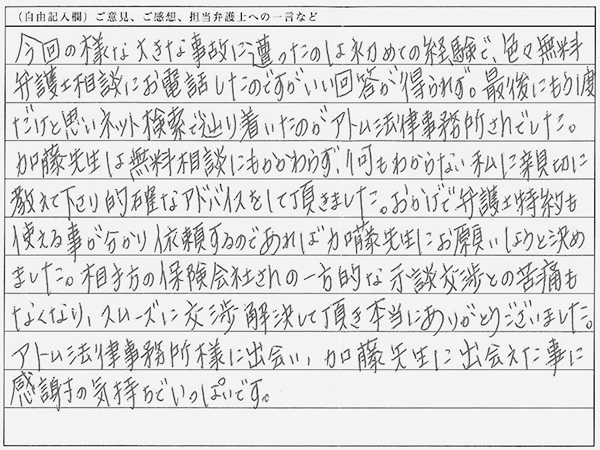 （自由記入欄）ご意見、ご感想、担当弁護士への一言など
今回の様な大きな事故に遭ったのは初めての経験で、色々無料
弁護士相談にお電話したのですがいい回答が得られず。最後にもう1度
だけと思いネット検索で辿り着いたのがアトム法律事務所さんでした。
加藤先生は無料相談にもかかわらず、何もわからない私に親切に
教えて下さり的確なアドバイスをして頂きました。おかげで弁護士特約も
使える事が分かり依頼するのであれば加藤先生にお願いしようと決め
ました。相手方の保険会社さんの一方的な示談交渉との苦痛も
なくなり、スムーズに交渉解決して頂き本当にありがとうございました。
アトム法律事務所様に出会い、加藤先生に出会えた事に
感謝の気持ちでいっぱいです。